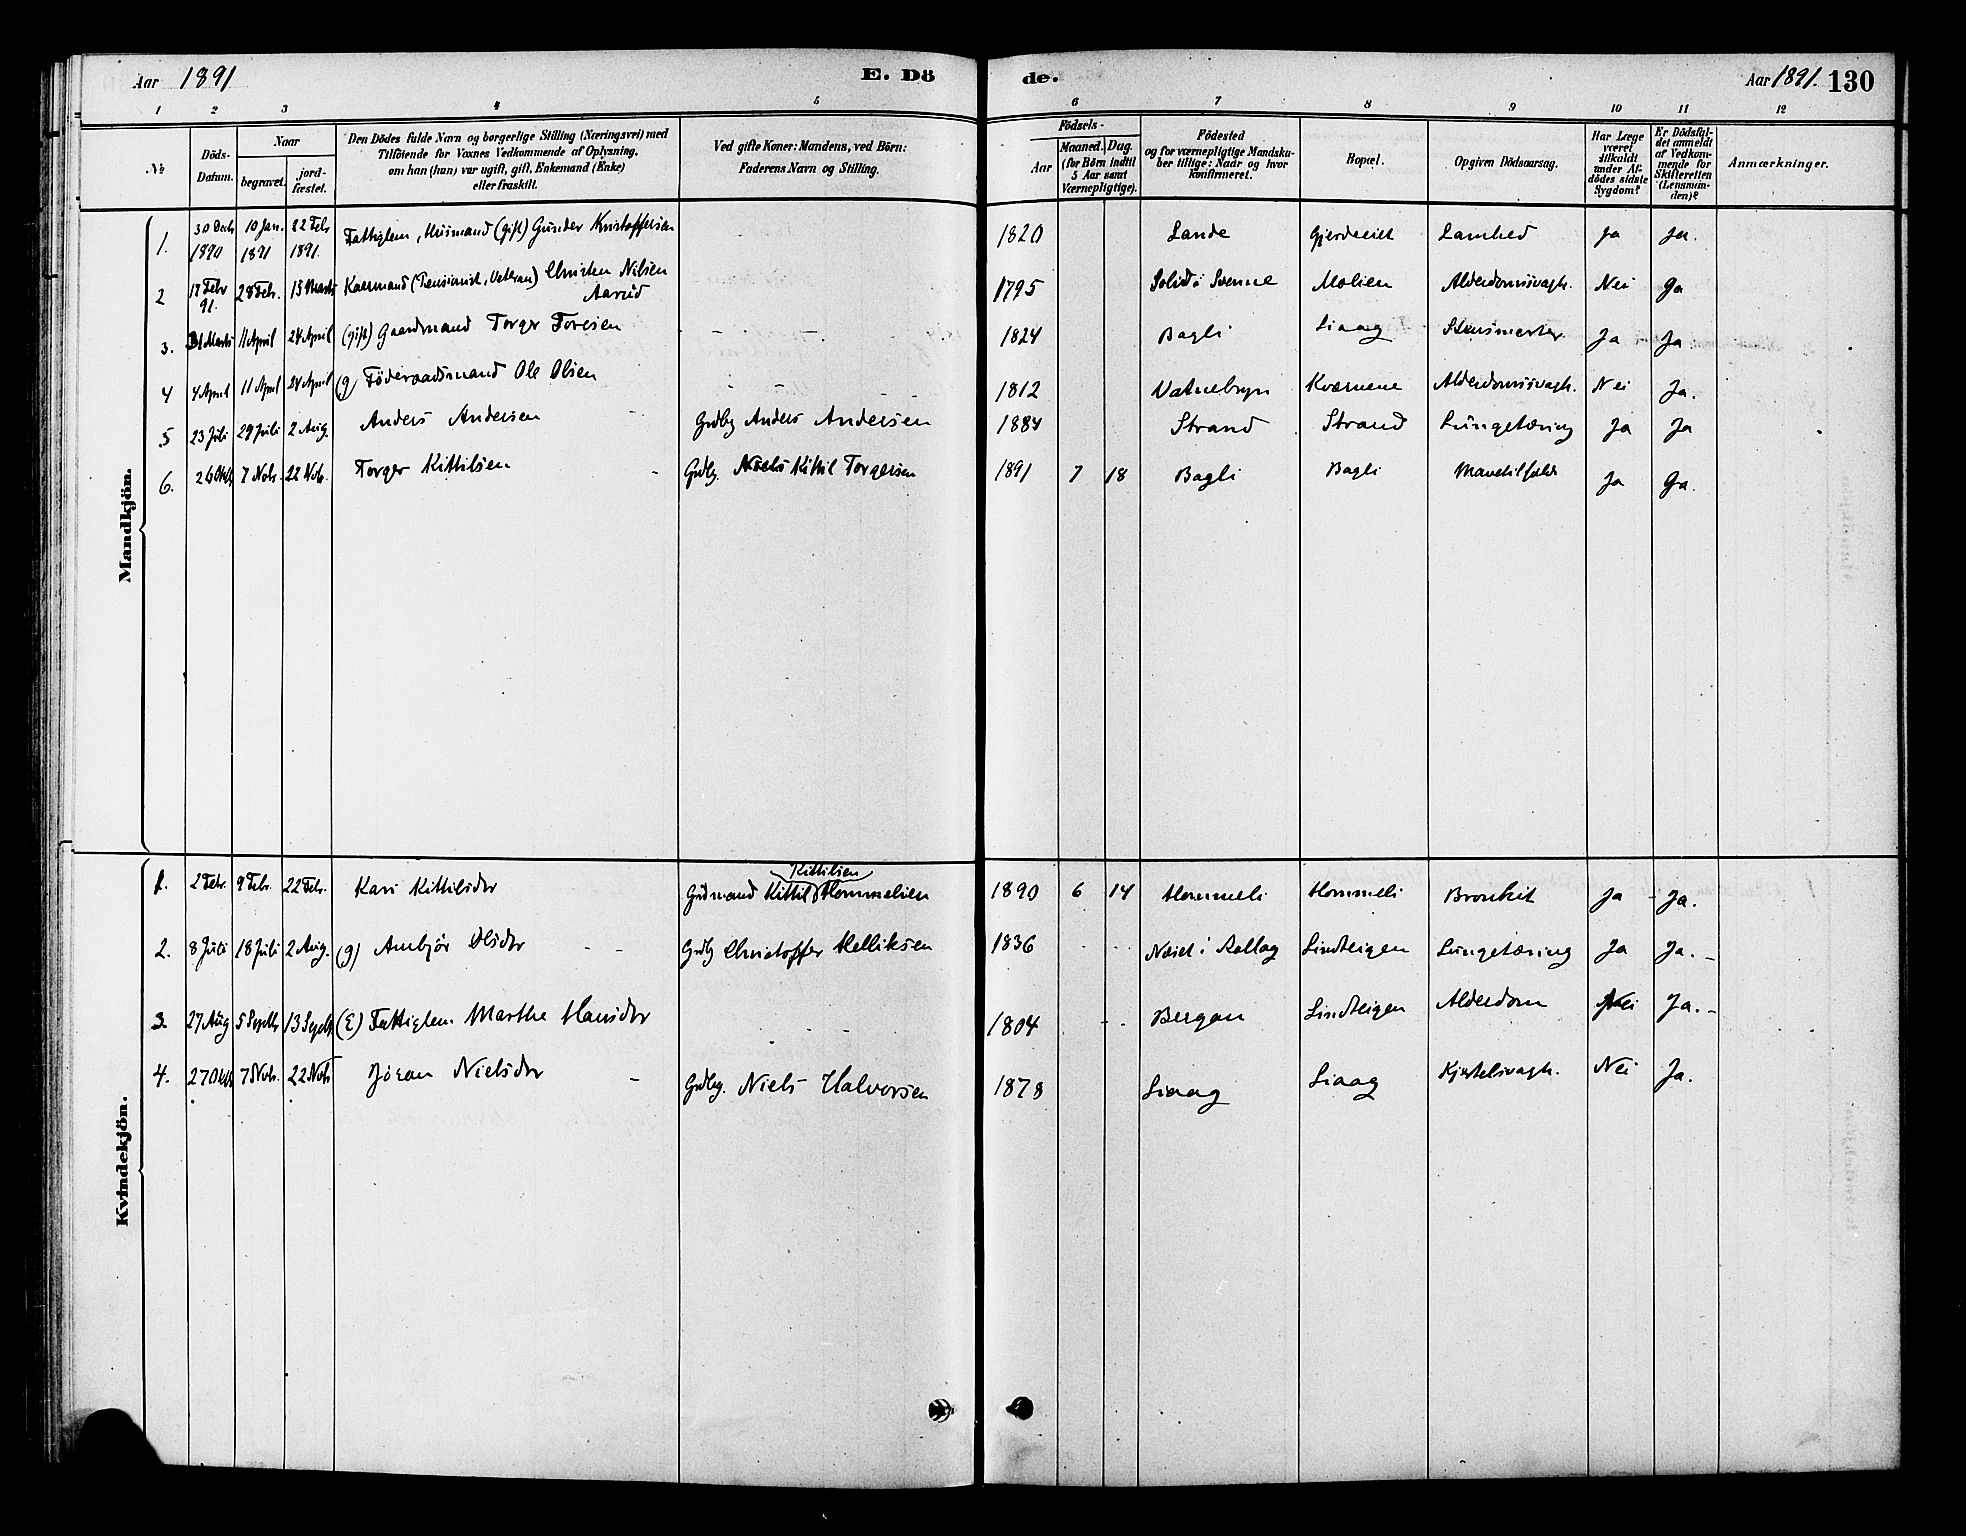 Aar 1891 E. Dö
de. Aar 1891. 130
1 2 3 4 5
6 7 8 9 10 11 12
No
Döds-Datum.
Naar
begravet. jordfæstet.
Den Dödes fulde Navn og borgerlige Stilling (Næringsvei) med
Tilföiende for Voxnes Vedkommende af Oplysning,
om han (hun) var ugift, gift, Enkemand (Enke)
eller fraskilt.
Ved gifte Koner: Mandens, ved Börn:
Faderens Navn og Stilling.
Födsels-
Aar Maaned. Dag.
(for Börn indtil
5 Aar samt
Værnepligtige).
Födested
og for værnepligtige Mandskaber tillige: Naar og hvor
konfirmeret.
Bopæl.
Opgiven Dödsaarsag.
Har Læge været tilkaldt under Afdödes sidste Sygdom?
Er Dödsfaldet anmeldt af Vedkommende for Skifteretten (Lensmanden)?
Anmærkninger.
Mandkjön.
1. 30 Decb 1890 10 Jan. 1891 22 Feb. 1891. Fattiglem, Husmand (gift) Gunder Kristoffersen 1820 Lande Gjerdeeiet Lamhed Ja Ja.
2 17 Febr 91. 28 Feb. 15 Marts Kaarmand (Pensionist, Veteran) Christen Nilsen Aarud 1795 Solid i Svenne Molien Alderdomssvagh. Nei Ja
3. 31 Marts 11 April 24 April (gift) Gaardmand Torger Toresen - - - 1824 Bagli Liaag Ja Ja
4 4 April 11 April 24 April (g) Föderaadsmand Ole Olsen - - 1812 Vatnebryn Kværnene Alderdomssvagh. Nei Ja.
5 23 Juli 29 Juli 2 Aug. Anders Andersen - Grdbg Anders Andersen 1884 Strand Strand Lungetæring Ja Ja
6. 26 Oktb 7 Nob. 22 Nob. Torger Kittilsen - Grdbg. Kittil Torgersen 1891 7 18 Bagli Bagli Mavetilfælde Ja Ja.
Kvindekjön.
1. 2 Febr. 9 Febr. 22 Febr. Kari Kittilsdtr Grdmand Kittil Kittilsen Hommelien 1890 6 14 Hommeli Hommeli Bronkit Ja - Ja.
2. 8 Juli 18 Juli 2 Aug. (g) Ambjör Olsdtr - - Grdbg Christoffer Helliksen 1836 - - Næset i Rollag Lindteigen Lungetæring Ja Ja. -
3. 27 Aug 5 Septb 13 Septb (E) Fattiglem. Marthe Hansdtr - - 1804 - - Bergan Lindteigen Alderdom Nei Ja. -
4. 27 Oktb 7 Nob. 22 Nob Jöran Nielsdtr - Grdbg. Niels Halvorsen 1878 Liaag Liaag Kjertelsvagh. Nei Ja.